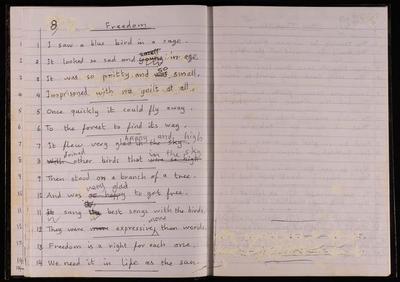 8 Freedom
1 1 I saw a blue bird in a cage.
2 2 It looked so sad and small in age
3 3 It was so pritty and so small,
4 4 Imprisoned with no guilt at all.
5 5 Once quickly it could fly away.
6 6 To the forest to find its way.
7 7 It flew very happy and high
8 8 joined other birds that in the sky
9 9 Then stood on a branch of a tree.
10 10 And was very glad to got free.
11 11 It sang the best songs with the birds,
12 12 They were expressive more than words.
13 13 Freedom is a right for each one.
14 14 We need it in life as the sun.